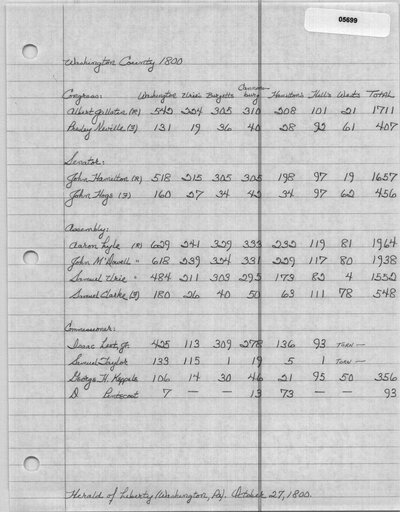 05699
Washington County 1800
Congress: Washington Urie's Burgetts Cannonsburg Hamilton's Hall's Wests TOTAL
Albert Gallatin (R) 542 224 305 310 208 101 21 1711
Presley Neville (F) 131 19 36 40 28 92 61 407
Senator:
John Hamilton (R) 518 215 305 305 198 97 19 1657
John Hoge (F) 160 27 34 42 34 97 62 456
Assembly:
Aaron Lyle (R) 629 241 329 333 232 119 81 1964
John McDowell " 618 239 324 331 229 117 80 1938
Samuel Urie " 484 211 303 295 173 82 4 1552
Samuel Clarke (F) 180 26 40 50 63 111 78 548
Commissioner:
Isaac Leet, Jr. 425 113 309 278 136 93 TORN —
Samuel Taylor 133 115 1 19 5 1 TORN —
George H. Keppele 106 14 30 46 21 95 50 356
D Pentecost 7 — — 13 73 — — 93
Herald of Liberty (Washington, Pa). October 27, 1800.